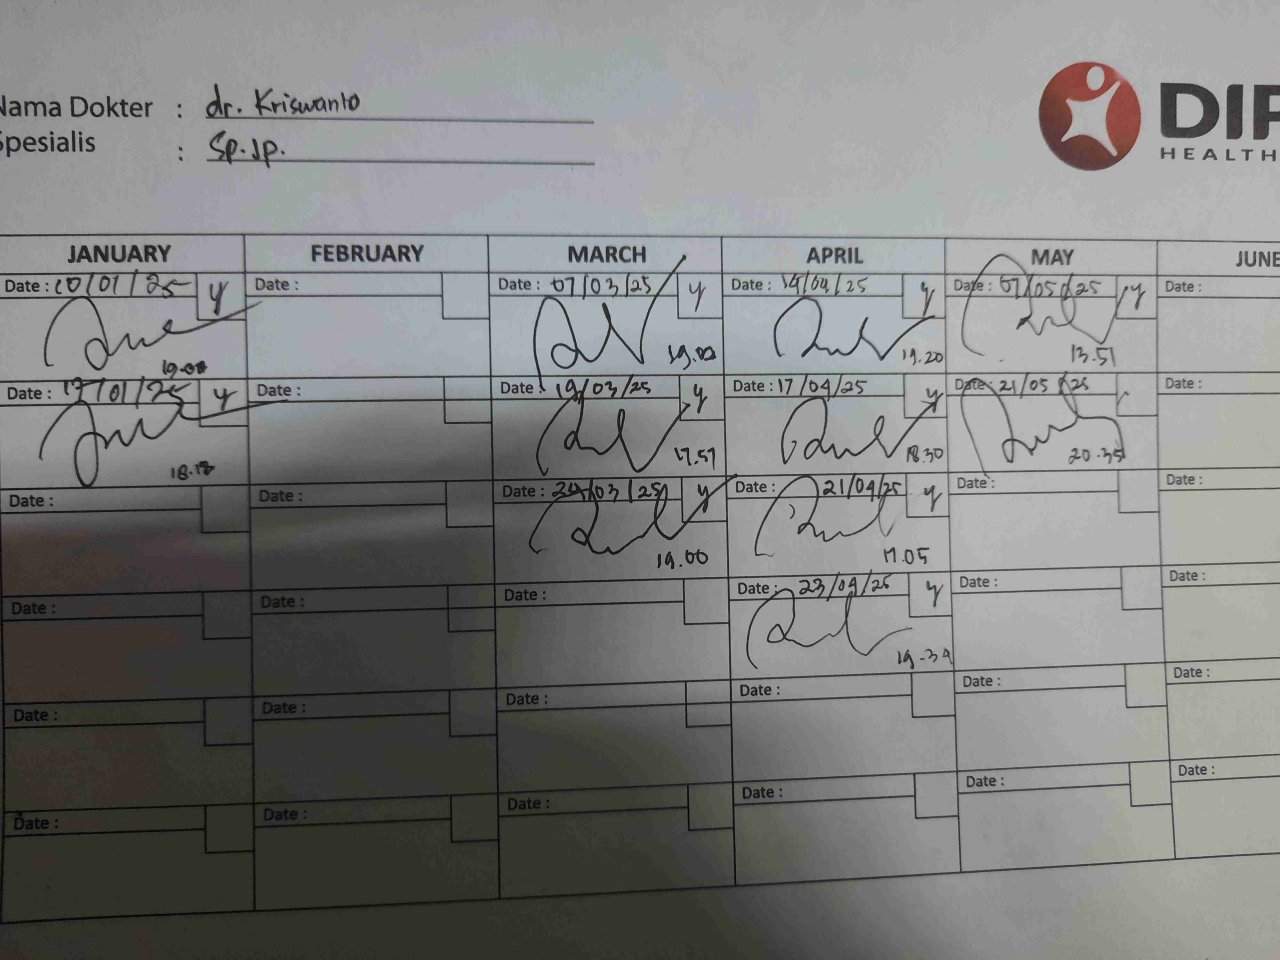 Nama Dokter : dr. Kriswanto
Spesialis : Sp.Jp.
DIP
HEALTH
JANUARY FEBRUARY MARCH APRIL MAY JUNE
Date : 10/01/25 y Date : Date : 07/03/25 y Date : 14/04/25 y Date : 07/05/25 y Date :
19.00 19.00 19.20 13.51
Date : 17/01/25 y Date : Date : 19/03/25 y Date : 17/04/25 y Date : 21/05/25 Date :
18.18 17.57 18.30 20.35
Date : Date : Date : 24/03/25 y Date : 21/04/25 y Date : Date :
19.00 17.05
Date : Date : Date : Date : 23/04/25 y Date : Date :
19.34
Date : Date : Date : Date : Date : Date :
Date : Date : Date : Date : Date : Date :